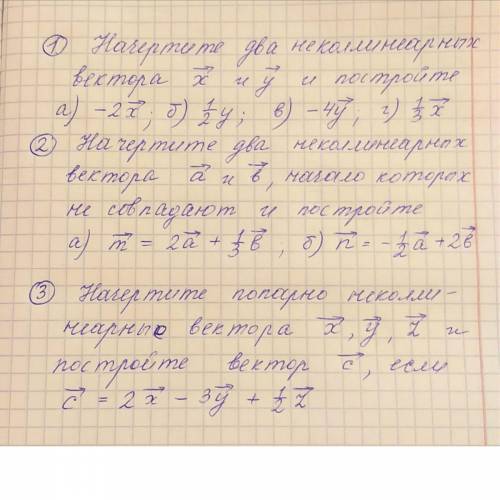 ① Начертите два неколлинеарных
вектора x⃗ и y⃗ и постройте
а) -2x⃗; б) 1/2 y; в) -4y⃗; г) 1/3 x⃗
② Начертите два неколлинеарных
вектора a⃗ и b⃗, начало которых
не совпадают и постройте
а) m⃗ = 2a⃗ + 1/3 b⃗, б) n⃗ = -1/2 a⃗ + 2b⃗
③ Начертите попарно неколли-
неарные вектора x⃗, y⃗, z⃗ и
постройте вектор c⃗, если
c⃗ = 2x⃗ - 3y⃗ + 1/2 z⃗